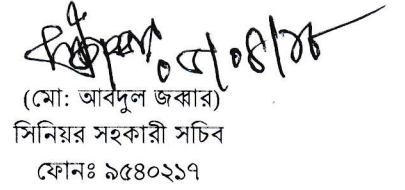 (মো: আবদুল জব্বার)
সিনিয়র সহকারী সচিব
ফোনঃ ৯৫৪০২১৭